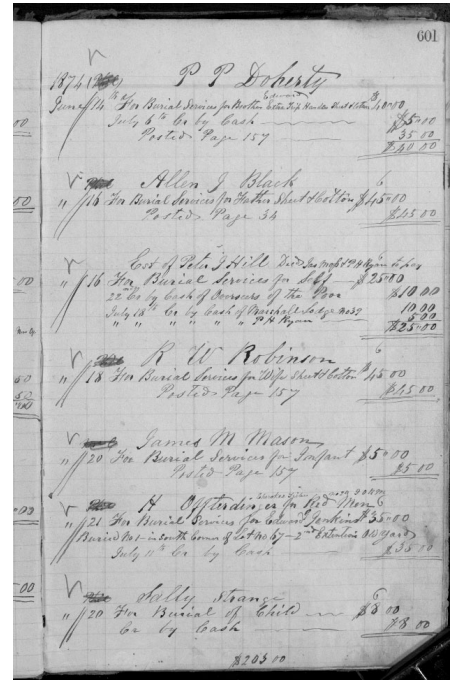 601
1874 P P Doherty
Edward
June 14th For Burial Services for Brother Extra Trip Hearse Sheet & Cotton $40.00
July 6th Cr by Cash $5.00
Posted Page 157 35 00
$40 00
Allen J Black 6
" 15 For Burial Services for Father Sheet & Cotton $45.00
Posted Page 34 $45 00
Est of Peter J Hill Decd Jas & P H Ryan to pay
" 16 For Burial Services for Self $25.00
22 Cr by Cash of Overseers of the Poor $10.00
July 15th Cr by Cash of Marshall Lodge No 39 10.00
" " " " " " P H Ryan 5.00
$25.00
R W Robinson 6
" 18 For Burial Services for Wife Sheet & Cotton $45 00
Posted Page 157 $45 00
James M Mason
" 20 For Burial Services for Infant $5.00
Posted Page 157 $5 00
H Offterdinger for Red Men 6
" 21 For Burial Services for Edward Jenkins $35.00
Buried No 1 in South Corner of Lot No 67 – 2nd Extention Yard
July 11th Cr by Cash $35 00
Sally Strange 6
" 20 For Burial of Child $8 00
Cr by Cash $8 00
$203 00